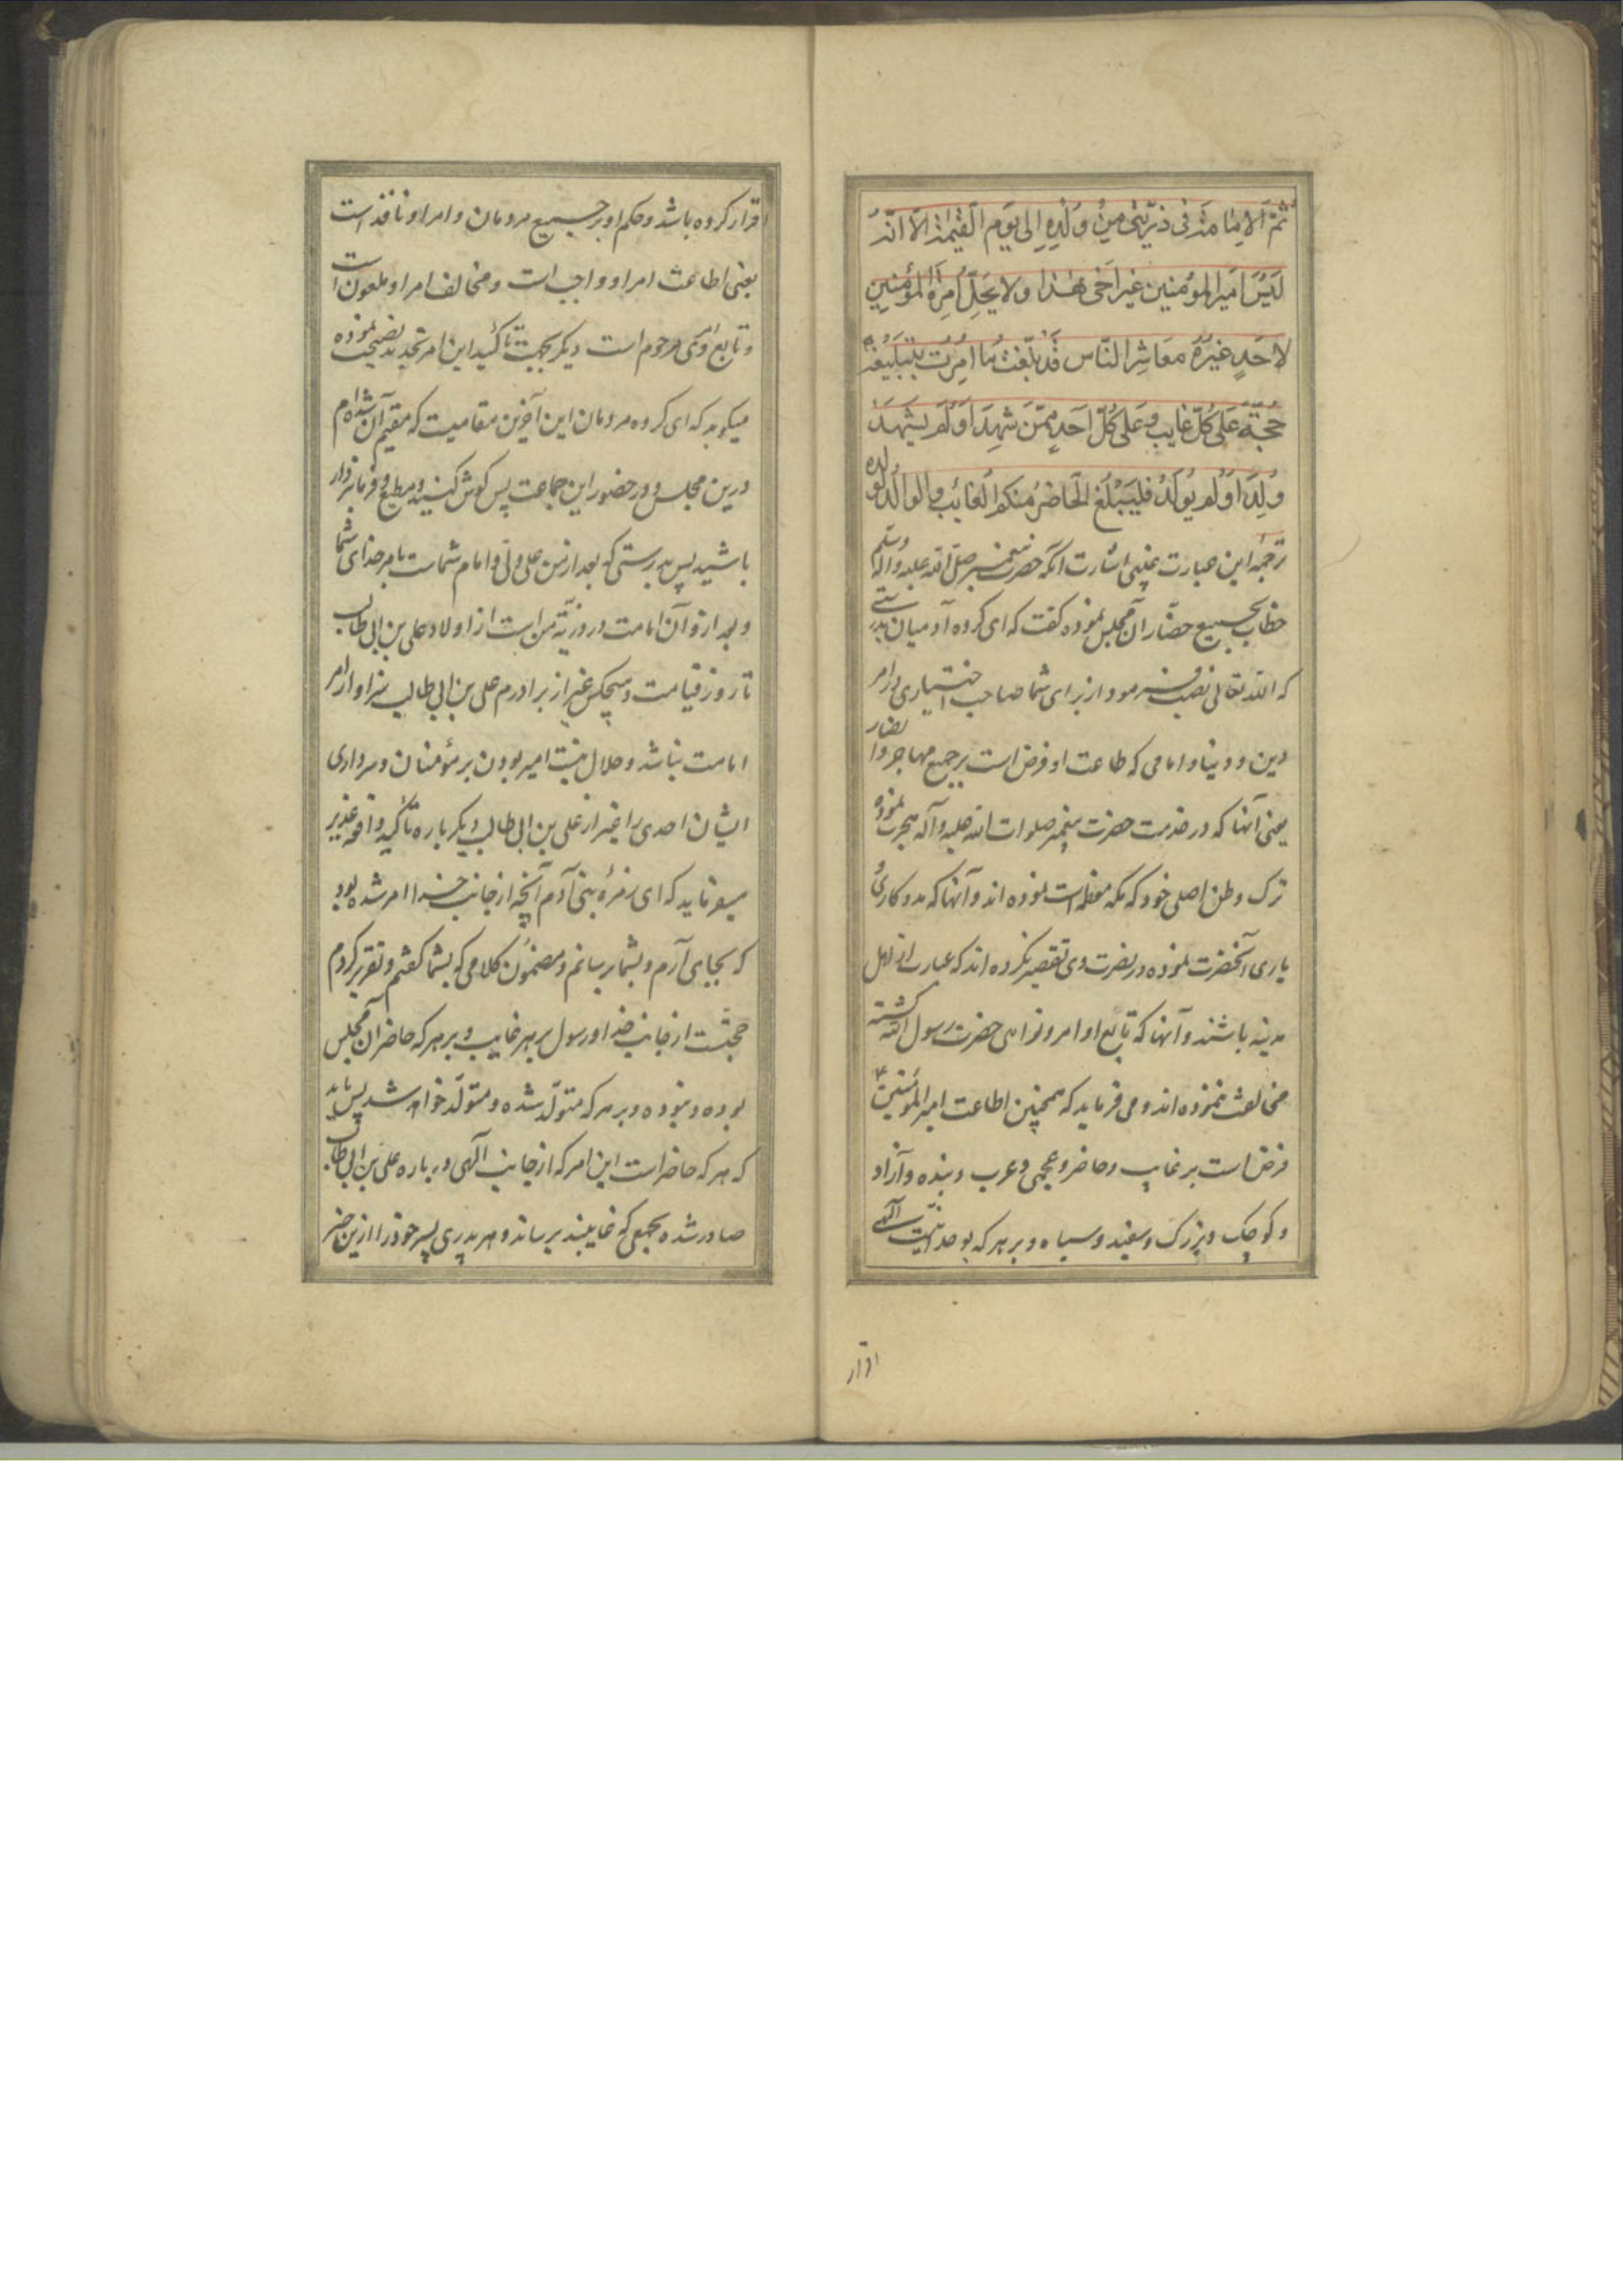 ثُمَّ الاِمٰامَة فی ذُرِّیَّتی مِنْ وُلْدِهِ اِلی یَومِ الْقِیٰمَة اَلَا اَنَّهُ
لَیْسَ اَمیرَ المُؤمِنین غیرَ اَخی هٰذا وَلا یَحِلُّ اِمْرَةُ المُؤمِنین
لاَحَدٍ غَیْرُهُ مَعَاشِرَ النَّاس قَدْ بَلَّغْتُ مٰا اُمِرْتُ بِتَبْلیغه
حُجَّةً عَلیٰ کُلّ غایبٍ وَعَلی کُلّ اَحَدٍ مِمَّنْ شَهِدَ اَوْلَمْ یَشْهَدْ
وُلِدَ اَوْلَمْ یُولَدْ فَلْیَبْلُغِ الْحَاضِرُ مِنْکُمُ الْغائِبَ والوالدُ الْوَلَد
ترجمهٔ این عبارت بمعنی اشارت آنکه حضرت پیغمبر صلّی الله علیه وآله وسلّم
خطاب بجمیع حضّار آن مجلس نموده گفت که ای کروه آدمیان بدرستی
که الله تعالی نصب فرمود از برای شما صاحب اختیاری در امر
دین و دنیا و امامی که طاعت او فرض است بر جمیع مهاجر و انصار
یعنی آنها که در خدمت حضرت پیغمبر صلوات الله علیه وآله هجرت نموده
ترک وطن اصلی خود که مکه معظمه است نموده اند و آنها که مددکاری
یاری آنحضرت نموده در نصرت وی تقصیر نکرده اند که عبارت از اهل
مدینه باشند و آنها که تابع اوامر و نواهی حضرت رسول الله گشته
مخالفت ننموده اند و می فرماید که همچنین اطاعت امیر المؤمنین
فرض است بر غایب و حاضر و عجمی و عرب و بنده و آزاد
و کوچک و بزرک و سفید و سیاه و بر هر که بوحدانیت آلهی
اقرار
اقرار کرده باشد و حکم او بر جمیع مردمان و امر او نافذ است
یعنی اطاعت امر او واجب است و مخالف امر او ملعون است
و تابع امر وی مرحوم است دیکر بجهت تأکید این امر تجدید نصیحت نموده
میکوید که ای کروه مردمان این آخرین مقامیست که مقیم آن شده ام
درین مجلس و در حضور این جماعت پس کوش کنید و مطیع و فرمانبردار
باشید پس بدرستی که بعد از من علی ولی و امام شماست بامر خدای شما
و بعد از و آن امامت در ذریّهٔ من است از اولاد علی بن ابی طالب
تا روز قیامت و هیچکس غیر از برادرم علی بن ابی طالب سزاوار امر
امامت نباشد و حلال نیست امیر بودن بر مؤمنان و سرداری
ایشان احدی را غیر از علی بن ابی طالب دیکر باره تأکید واقعه غدیر
میفرماید که ای زمرهٔ بنی آدم آنچه از جانب خدا امر شده بود
که بجای آرم و بشما رسانم و مضمون کلامی که بشما کفتم و تقریر کردم
حجّتست از جانب خدا و رسول بر هر غایب و بر هر که حاضر آن مجلس
بوده و نبوده و بر هر که متولّد شده و متولّد خواهد شد پس باید
که هر که حاضر است این امر که از جانب آلهی در باره علی بن ابی طالب
صادر شده بجمعی که غایبند برساند و هر پدری پسر خود را ازین خبر